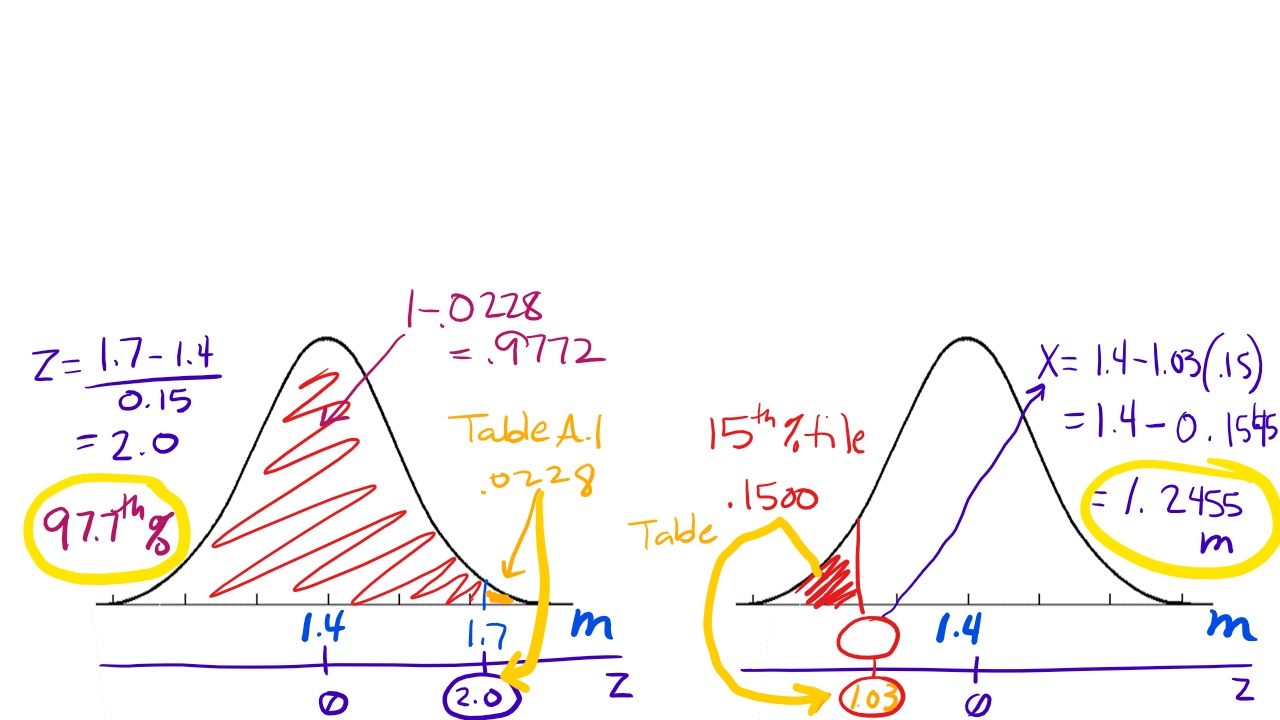 Z = 1.7 - 1.4
0.15
= 2.0
97.7th %
1-.0228
= .9772
Table A.1
.0228
1.4
1.7
m
0
2.0
Z
15th %tile
.1500
Table
X = 1.4-1.03(.15)
= 1.4 - 0.1545
= 1.2455
m
1.4
m
1.03
0
Z